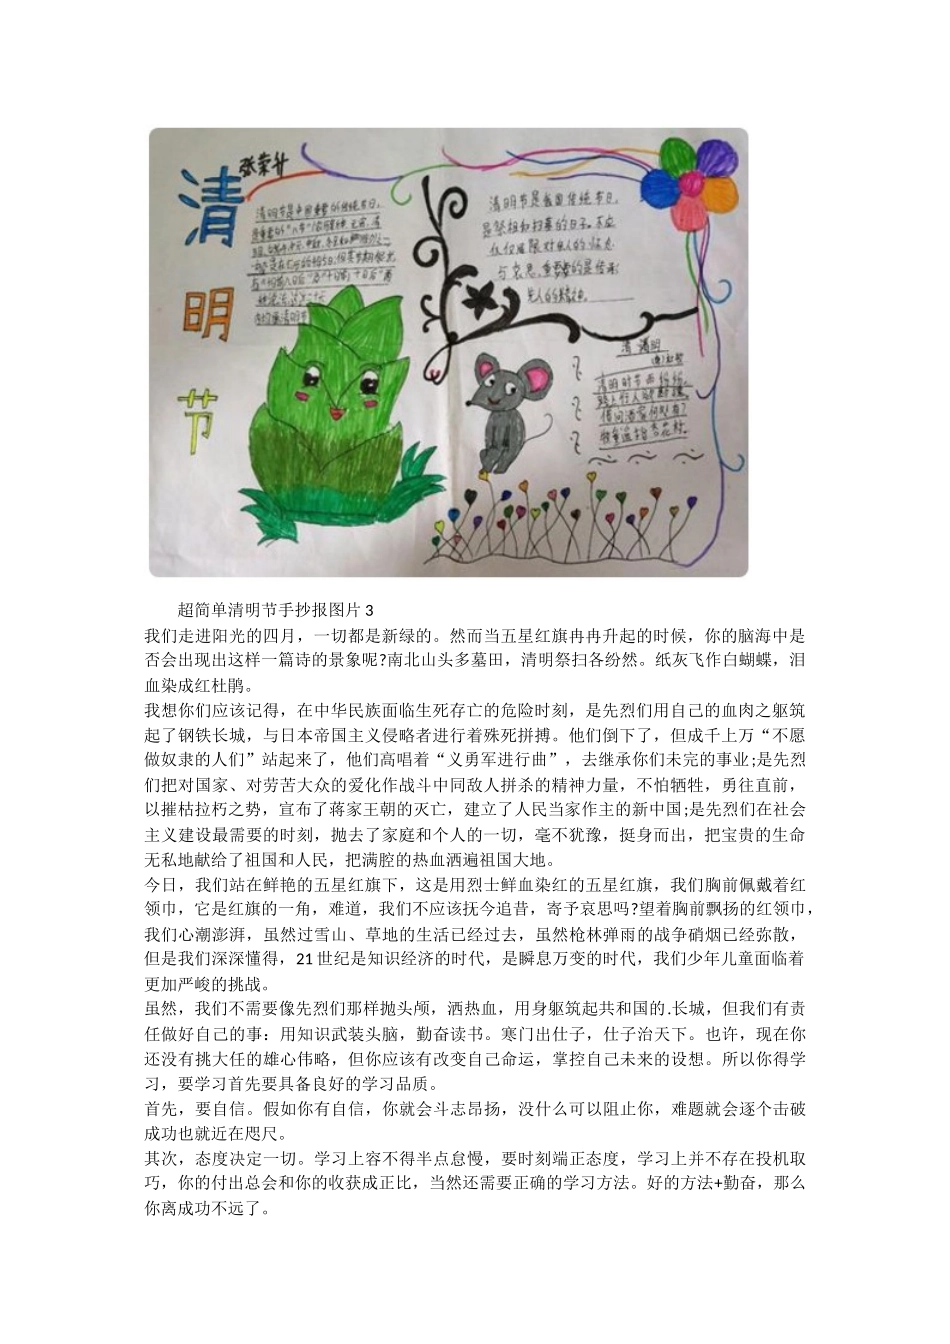 清
明
节
张荣升
清明节是中国重要的传统节日,
清明节是我国传统节日,
是祭祖和扫墓的日子。不应
仅仅局限对故人的怀念
与哀思,重要的是传承
清明
清明时节雨纷纷,
路上行人欲断魂。
借问酒家何处有?
牧童遥指杏花村。
超简单清明节手抄报图片 3
我们走进阳光的四月，一切都是新绿的。然而当五星红旗冉冉升起的时候，你的脑海中是
否会出现出这样一篇诗的景象呢?南北山头多墓田，清明祭扫各纷然。纸灰飞作白蝴蝶，泪
血染成红杜鹃。
我想你们应该记得，在中华民族面临生死存亡的危险时刻，是先烈们用自己的血肉之躯筑
起了钢铁长城，与日本帝国主义侵略者进行着殊死拼搏。他们倒下了，但成千上万“不愿
做奴隶的人们”站起来了，他们高唱着“义勇军进行曲”，去继承你们未完的事业;是先烈
们把对国家、对劳苦大众的爱化作战斗中同敌人拼杀的精神力量，不怕牺牲，勇往直前，
以摧枯拉朽之势，宣布了蒋家王朝的灭亡，建立了人民当家作主的新中国;是先烈们在社会
主义建设最需要的时刻，抛去了家庭和个人的一切，毫不犹豫，挺身而出，把宝贵的生命
无私地献给了祖国和人民，把满腔的热血洒遍祖国大地。
今日，我们站在鲜艳的五星红旗下，这是用烈士鲜血染红的五星红旗，我们胸前佩戴着红
领巾，它是红旗的一角，难道，我们不应该抚今追昔，寄予哀思吗?望着胸前飘扬的红领巾，
我们心潮澎湃，虽然过雪山、草地的生活已经过去，虽然枪林弹雨的战争硝烟已经弥散，
但是我们深深懂得，21 世纪是知识经济的时代，是瞬息万变的时代，我们少年儿童面临着
更加严峻的挑战。
虽然，我们不需要像先烈们那样抛头颅，洒热血，用身躯筑起共和国的.长城，但我们有责
任做好自己的事：用知识武装头脑，勤奋读书。寒门出仕子，仕子治天下。也许，现在你
还没有挑大任的雄心伟略，但你应该有改变自己命运，掌控自己未来的设想。所以你得学
习，要学习首先要具备良好的学习品质。
首先，要自信。假如你有自信，你就会斗志昂扬，没什么可以阻止你，难题就会逐个击破
成功也就近在咫尺。
其次，态度决定一切。学习上容不得半点怠慢，要时刻端正态度，学习上并不存在投机取
巧，你的付出总会和你的收获成正比，当然还需要正确的学习方法。好的方法+勤奋，那么
你离成功不远了。